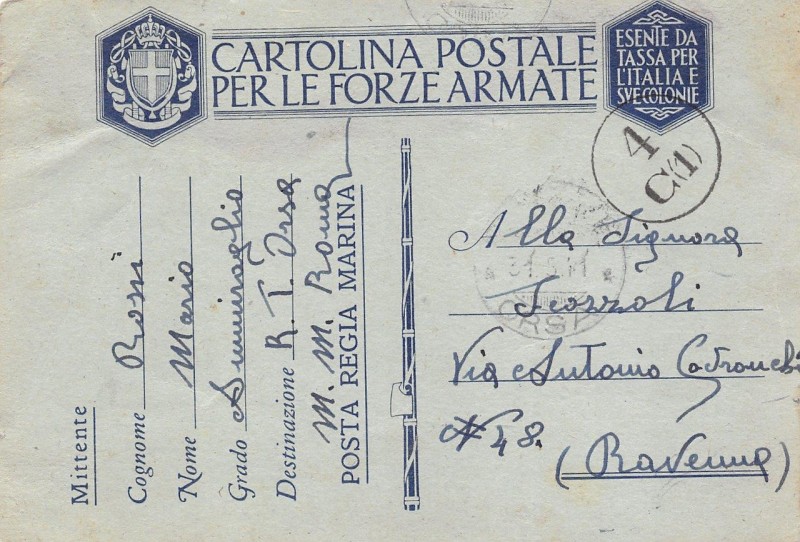 CARTOLINA POSTALE
PER LE FORZE ARMATE
ESENTE DA
TASSA PER
L'ITALIA E
SVE COLONIE
4
C(1)
Mittente
Cognome Rossi
Nome Mario
Grado Ammiraglio
Destinazione R. T. Orsa
M. M. Roma
POSTA REGIA MARINA
Alla Signora
Scozzoli
Via Antonio Codronchi
N 48.
(Ravenna)
ORSA